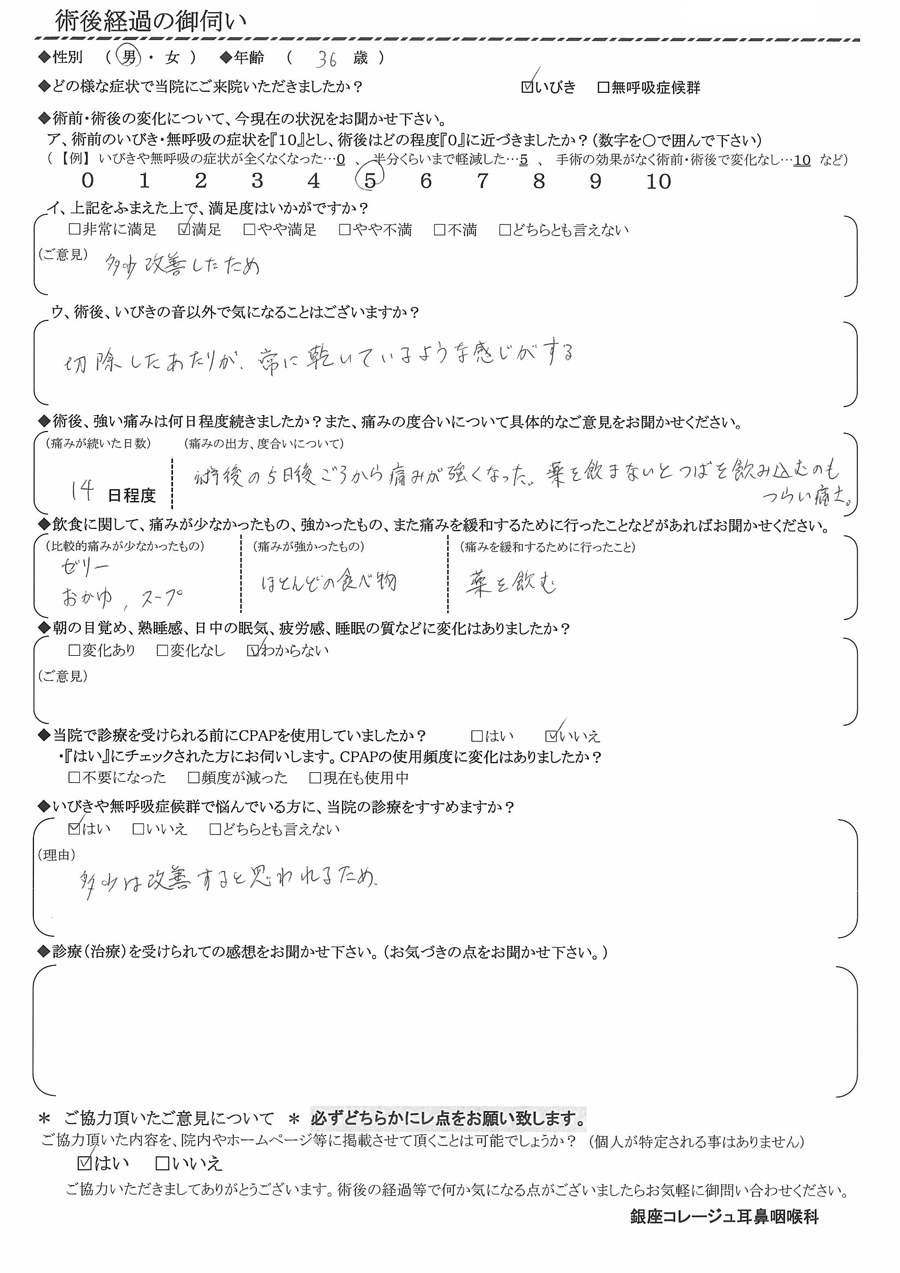 術後経過の御伺い
◆性別 （ 男 ・ 女 ） ◆年齢 （ 36 歳 ）
◆どの様な症状で当院にご来院いただきましたか？ ☑いびき □無呼吸症候群
◆術前・術後の変化について、今現在の状況をお聞かせ下さい。
ア、術前のいびき・無呼吸の症状を『10』とし、術後はどの程度『0』に近づきましたか？（数字を〇で囲んで下さい）
（ 【例】 いびきや無呼吸の症状が全くなくなった…0 、 半分くらいまで軽減した…5 、 手術の効果がなく術前・術後で変化なし…10 など）
0 1 2 3 4 5 6 7 8 9 10
イ、上記をふまえた上で、満足度はいかがですか？
□非常に満足 ☑満足 □やや満足 □やや不満 □不満 □どちらとも言えない
（ご意見） 多少改善したため
ウ、術後、いびきの音以外で気になることはございますか？
切除したあたりが、常に乾いているような感じがする
◆術後、強い痛みは何日程度続きましたか？また、痛みの度合いについて具体的なご意見をお聞かせください。
（痛みが続いた日数） （痛みの出方、度合いについて）
14 日程度 術後の5日後ごろから痛みが強くなった。薬を飲まないとつばを飲み込むのも
つらい痛さ。
◆飲食に関して、痛みが少なかったもの、強かったもの、また痛みを緩和するために行ったことなどがあればお聞かせください。
（比較的痛みが少なかったもの） （痛みが強かったもの） （痛みを緩和するために行ったこと）
ゼリー
おかゆ、スープ ほとんどの食べ物 薬を飲む
◆朝の目覚め、熟睡感、日中の眠気、疲労感、睡眠の質などに変化はありましたか？
□変化あり □変化なし ☑わからない
（ご意見）
◆当院で診療を受けられる前にCPAPを使用していましたか？ □はい ☑いいえ
・『はい』にチェックされた方にお伺いします。CPAPの使用頻度に変化はありましたか？
□不要になった □頻度が減った □現在も使用中
◆いびきや無呼吸症候群で悩んでいる方に、当院の診療をすすめますか？
☑はい □いいえ □どちらとも言えない
（理由）
多少は改善すると思われるため。
◆診療（治療）を受けられての感想をお聞かせ下さい。（お気づきの点をお聞かせ下さい。）
＊ ご協力頂いたご意見について ＊ 必ずどちらかにレ点をお願い致します。
ご協力頂いた内容を、院内やホームページ等に掲載させて頂くことは可能でしょうか？ （個人が特定される事はありません）
☑はい □いいえ
ご協力いただきましてありがとうございます。術後の経過等で何か気になる点がございましたらお気軽に御問い合わせください。
銀座コレージュ耳鼻咽喉科